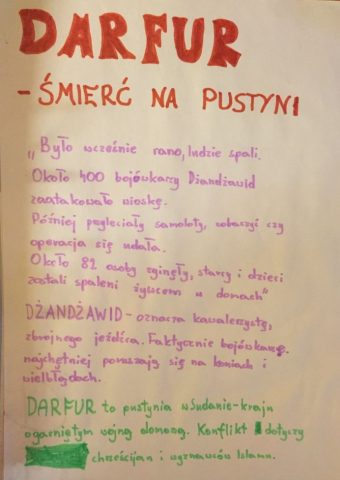 DARFUR
- ŚMIERĆ NA PUSTYNI
„Było wcześnie rano, ludzie spali.
Około 400 bojówkarzy Dżandżawid
zaatakowało wioskę.
Później przyleciały samoloty, zobaczyć czy
operacja się udała.
Około 82 osoby zginęły, starcy i dzieci
zostali spaleni żywcem w domach"
DŻANDŻAWID - oznacza kawalerzystę,
zbrojnego jeźdźca. Faktycznie bojówkarze
najchętniej poruszają się na koniach i
wielbłądach.
DARFUR to pustynia w Sudanie - kraju
ogarniętym wojną domową. Konflikt dotyczy
chrześcijan i wyznawców Islamu.